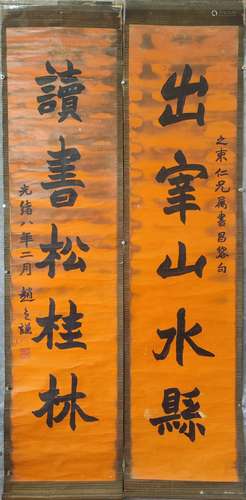 出宰山水縣
之東仁兄属書昌黎句
讀書松桂林
光緒八年二月 趙之謙